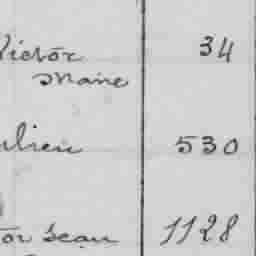 Victor 34
Marie
ulien 530
tor Jean 1128